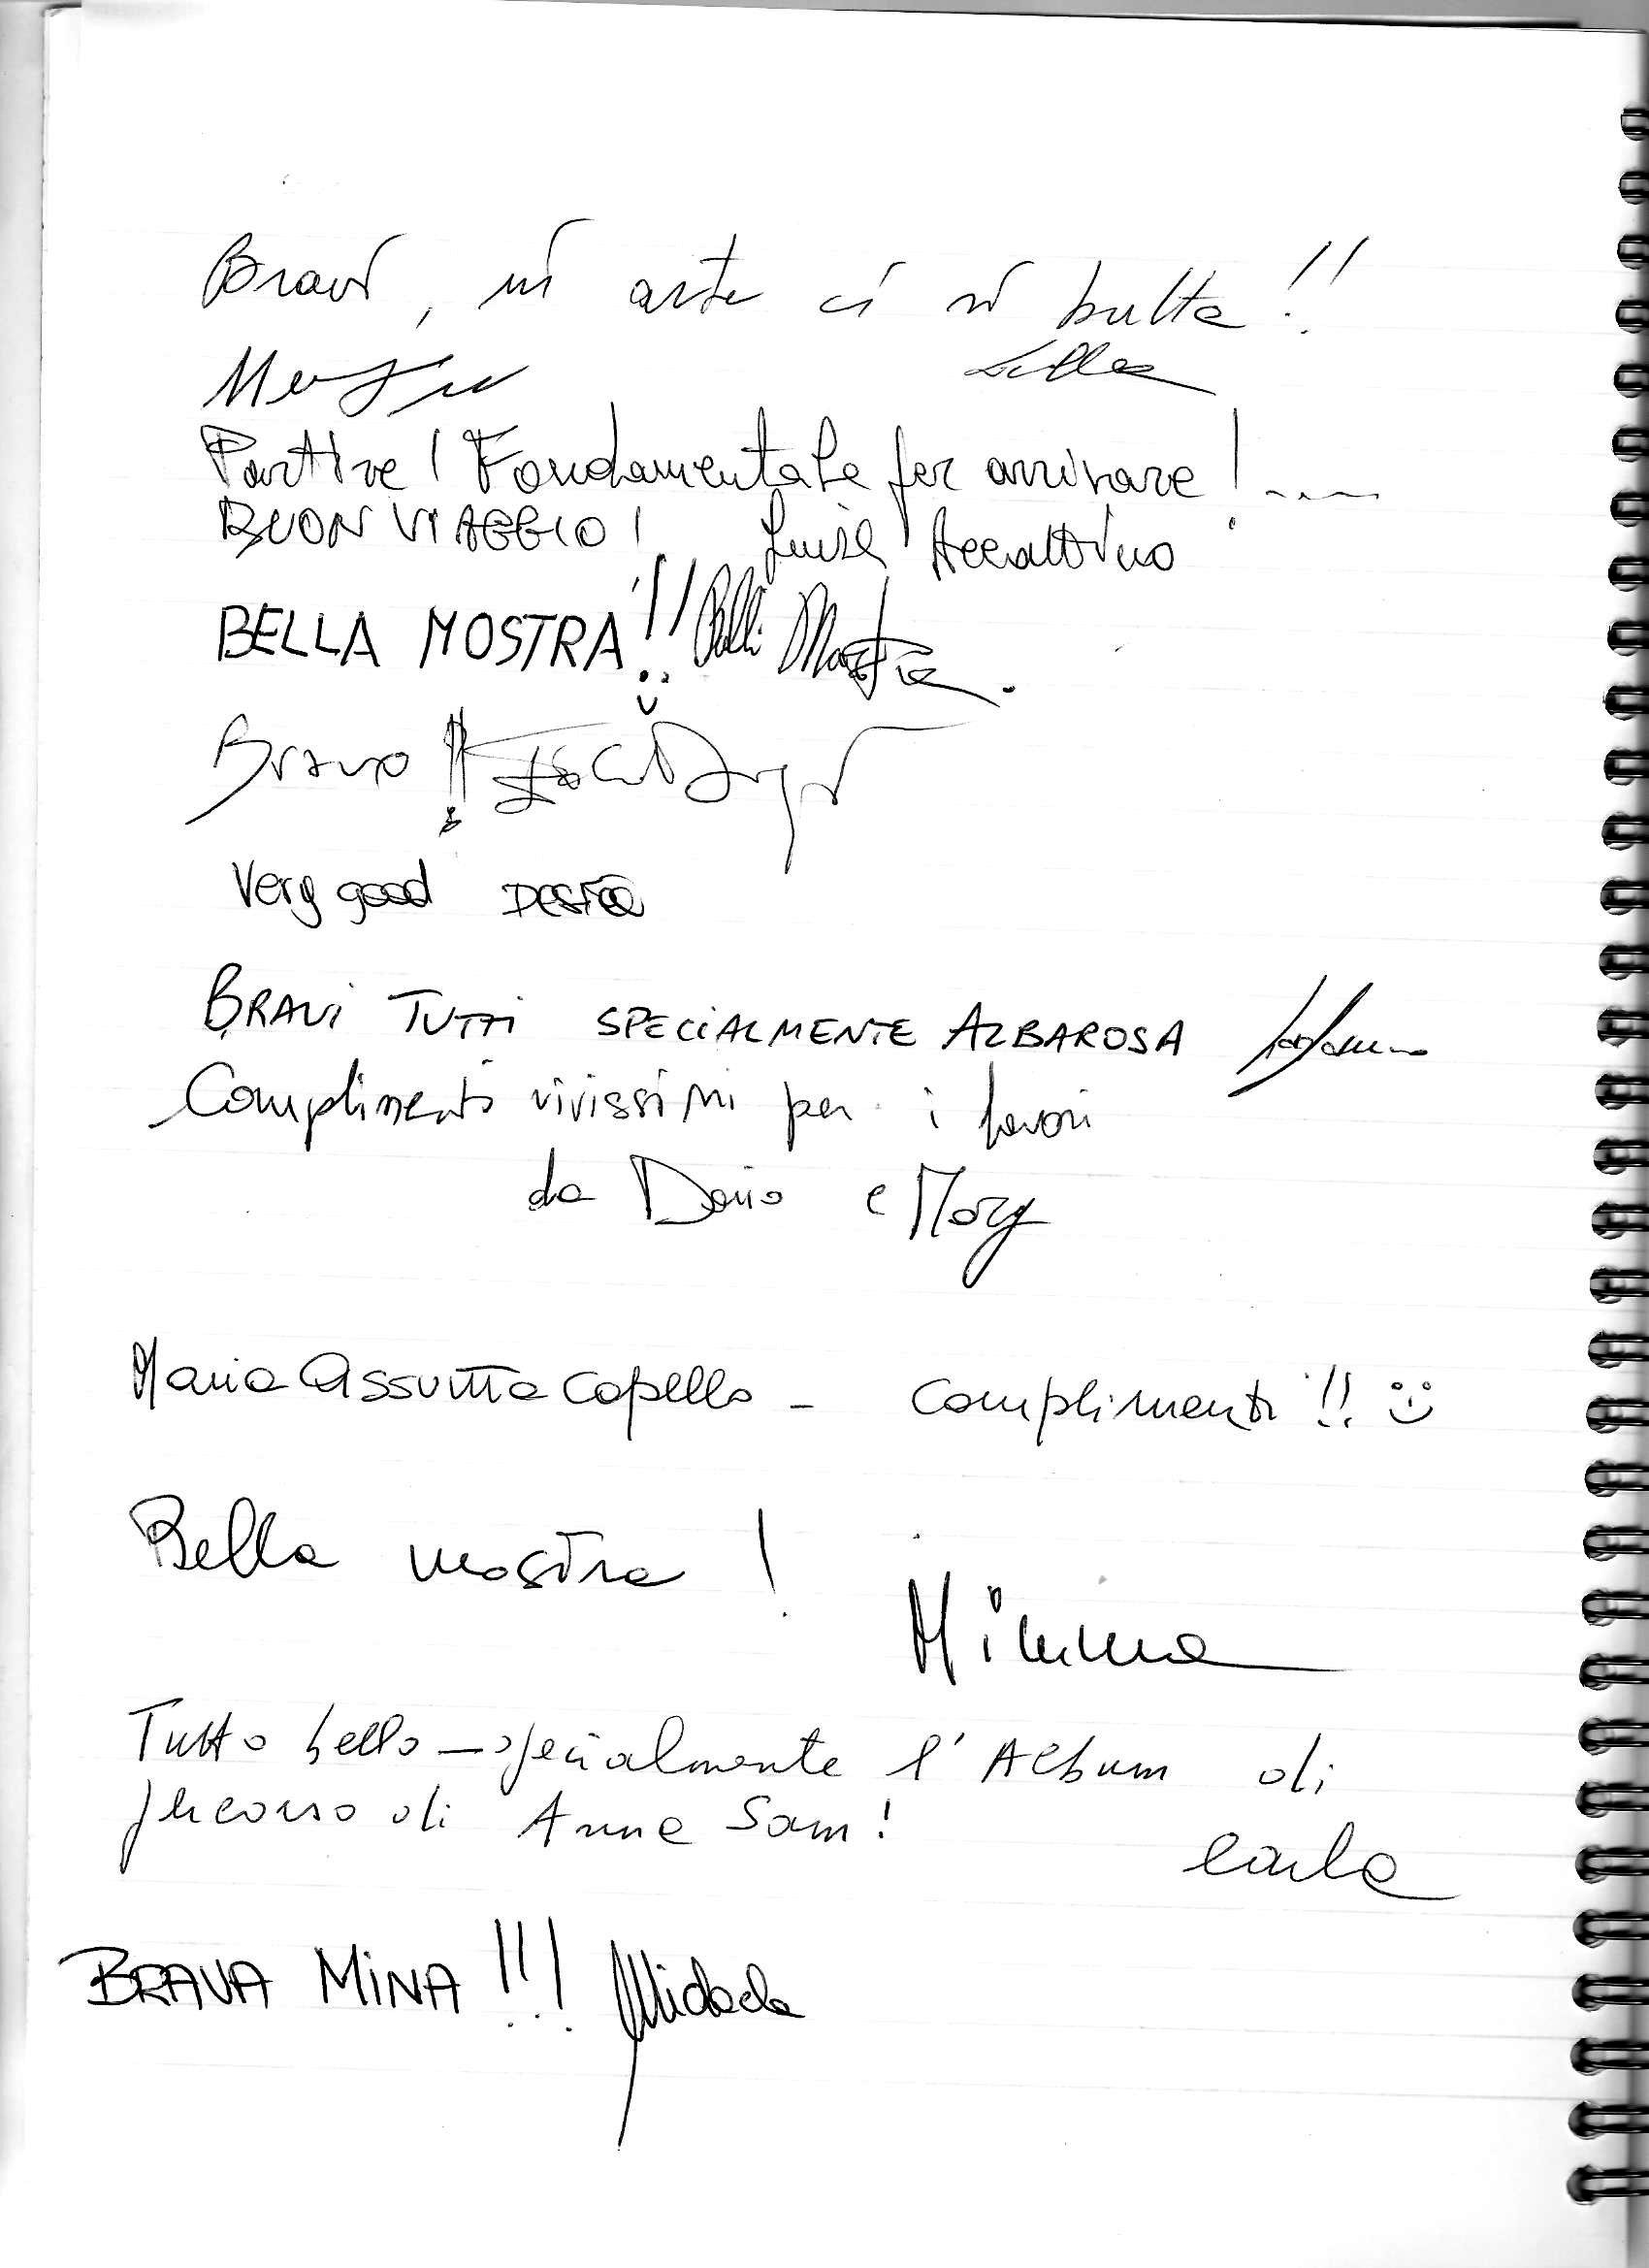 Bravi, in arte ci si butta!!
Partire! Fondamentale per arrivare!....
BUON VIAGGIO! Luisa Accattino
BELLA MOSTRA!!
Bravo!!
Very good
BRAVI TUTTI SPECIALMENTE ALBAROSA
Complimenti vivissimi per i lavori
da Dario e Mary
Maria Assunta Capello - Complimenti!! :)
Bella mostra!
Mimma
Tutto bello - specialmente l'Album di
percorso di Anne Sam!
Carla
BRAVA MINA!!!